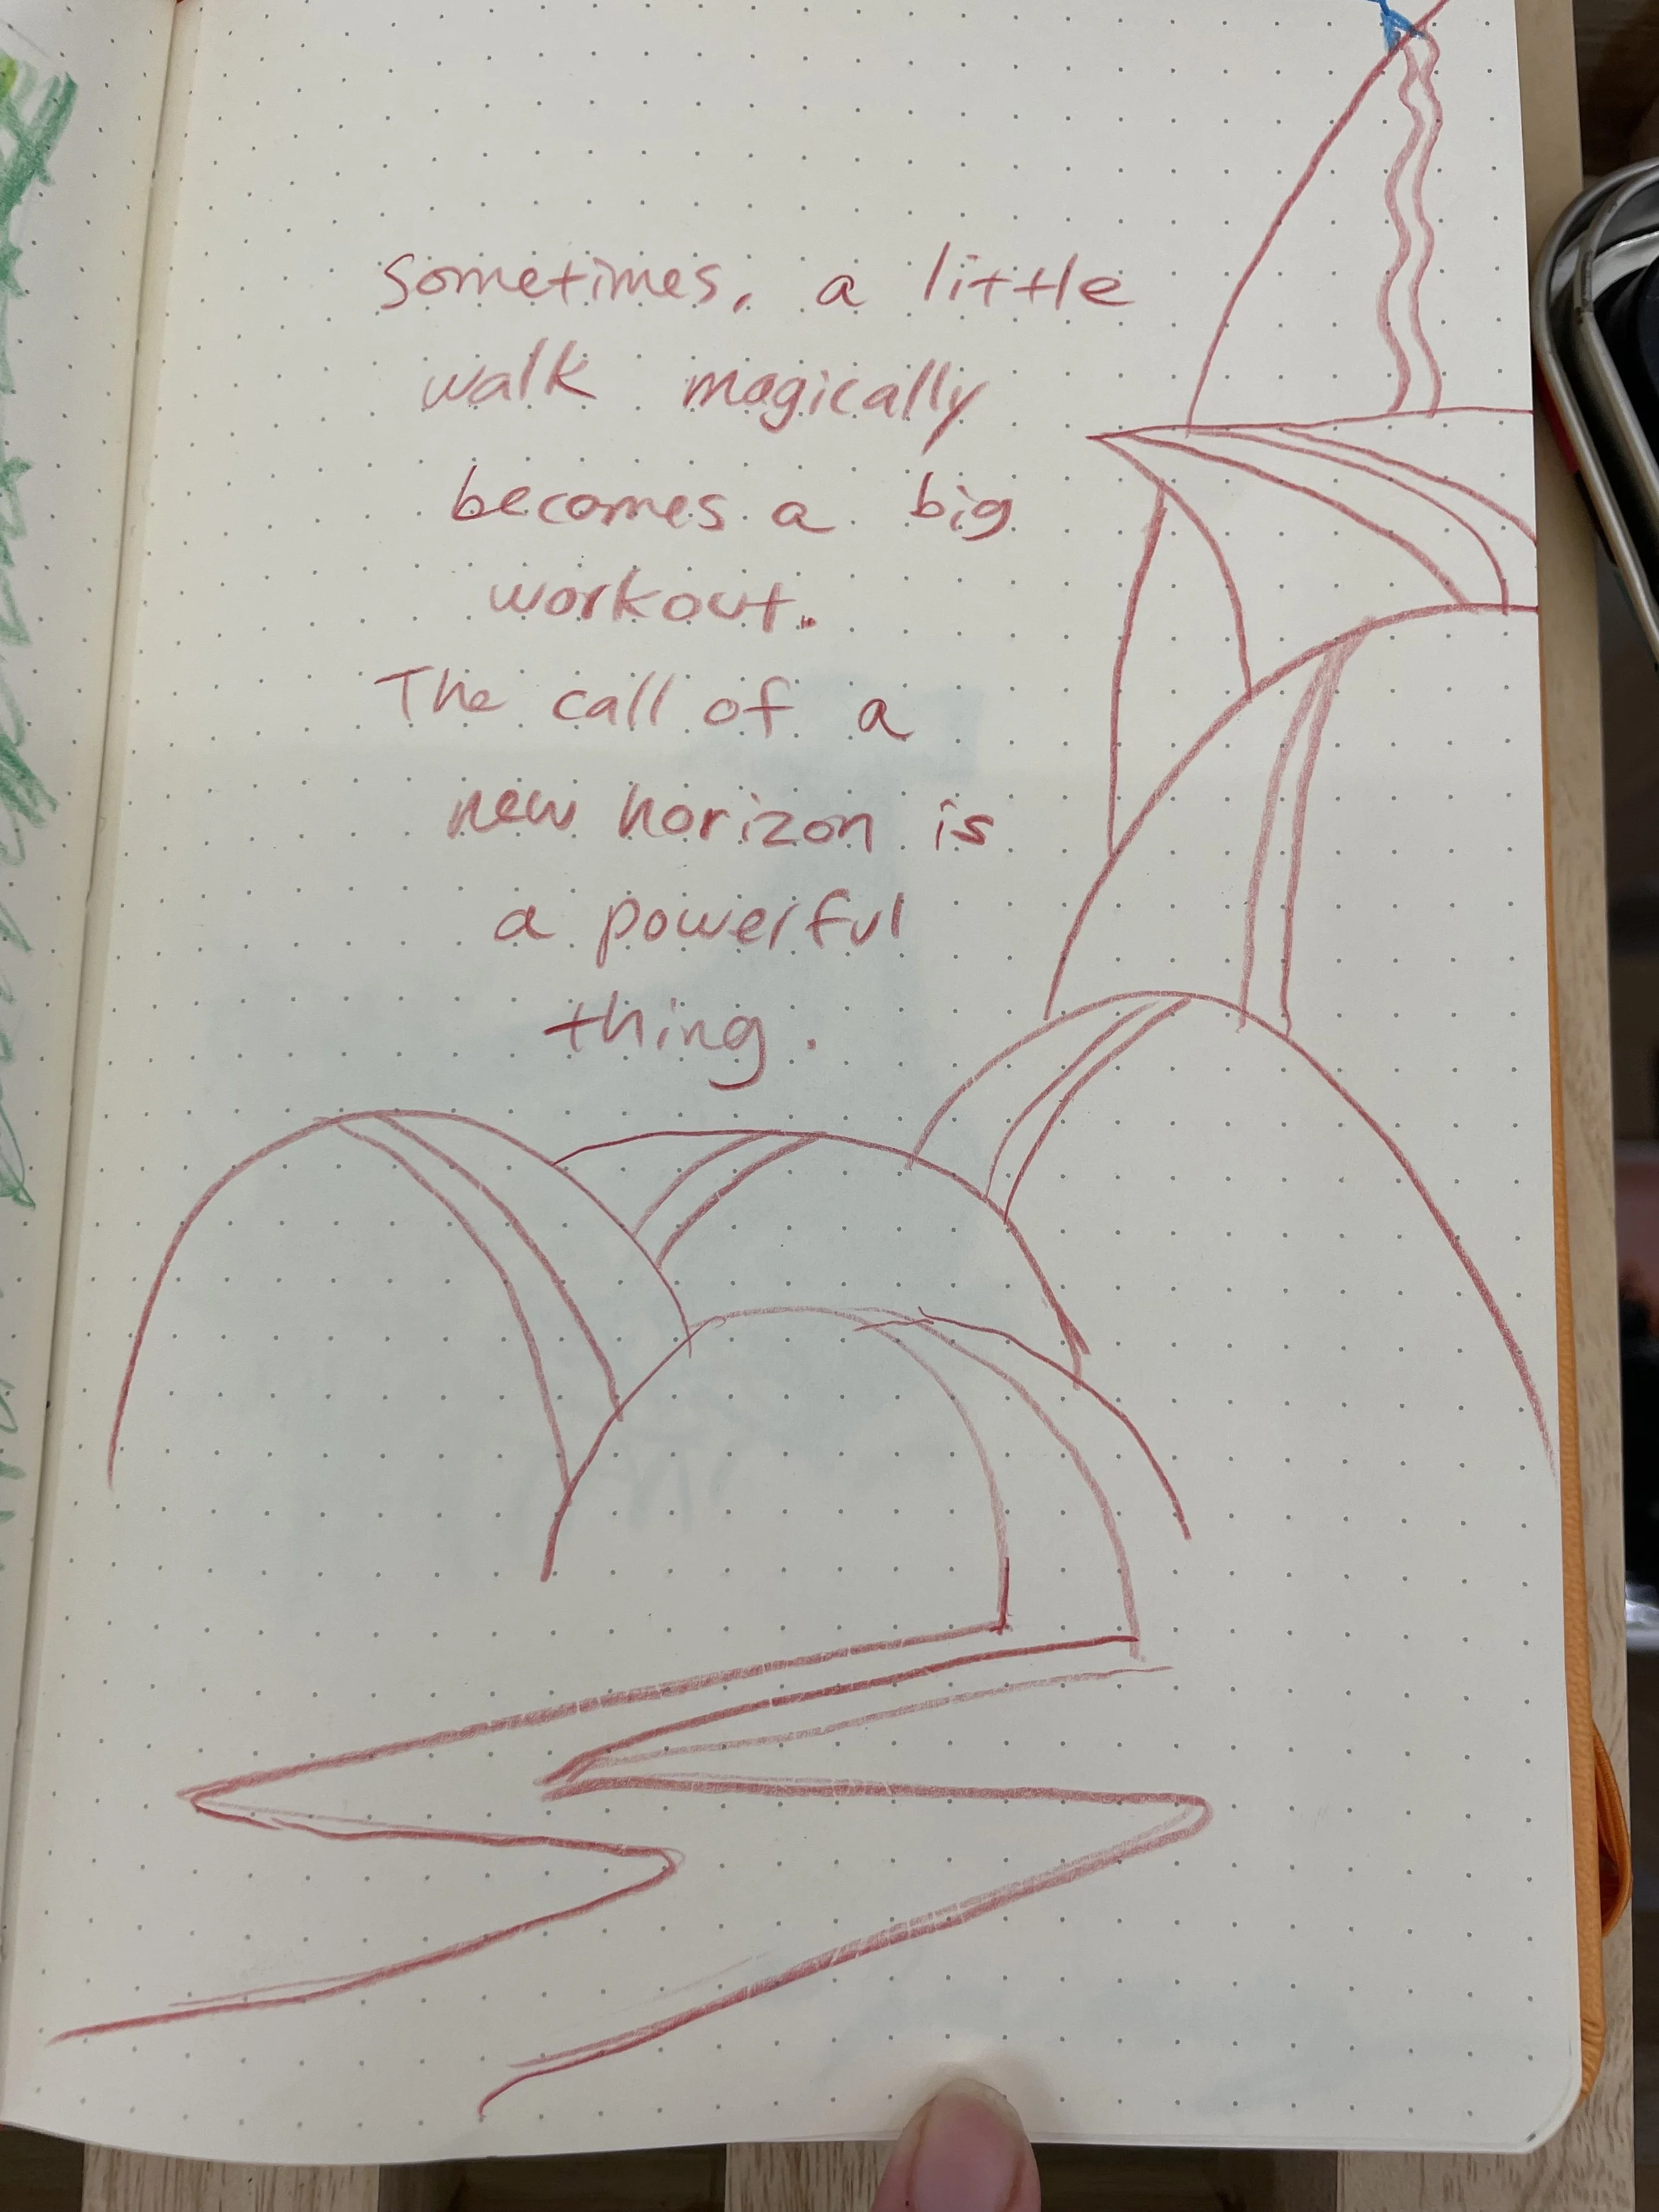 Sometimes, a little
walk magically
becomes a big
workout.
The call of a
new horizon is
a powerful
thing.